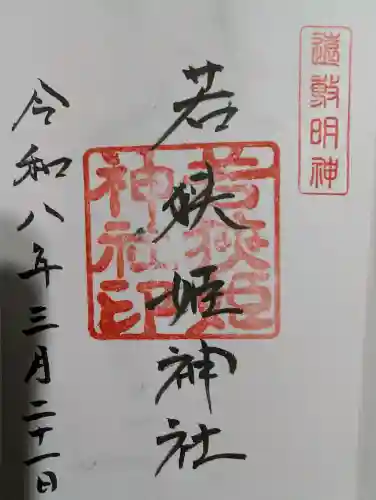 遠敷明神
若狭姫神社
若狭姫神社印
令和八年三月二十一日